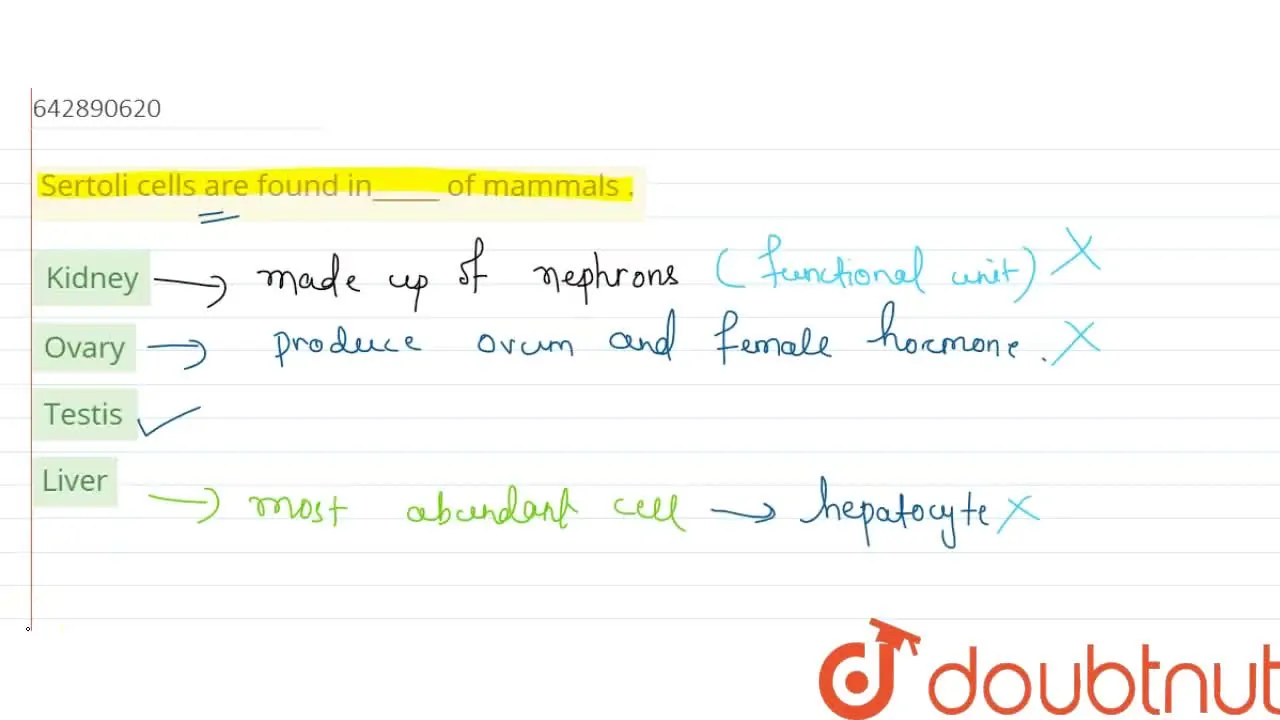 642890620
Sertoli cells are found in_____ of mammals .
Kidney → made up of nephrons (functional unit) X
Ovary → produce ovum and female hormone. X
Testis ✓
Liver → most abundant cell → hepatocyte X
doubtnut